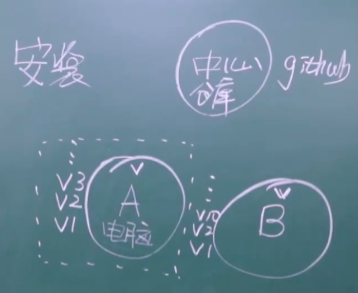 安装
中心
仓库
github
⋮
V3
V2
V1
A
电脑
⋮
V10
V2
V1
B